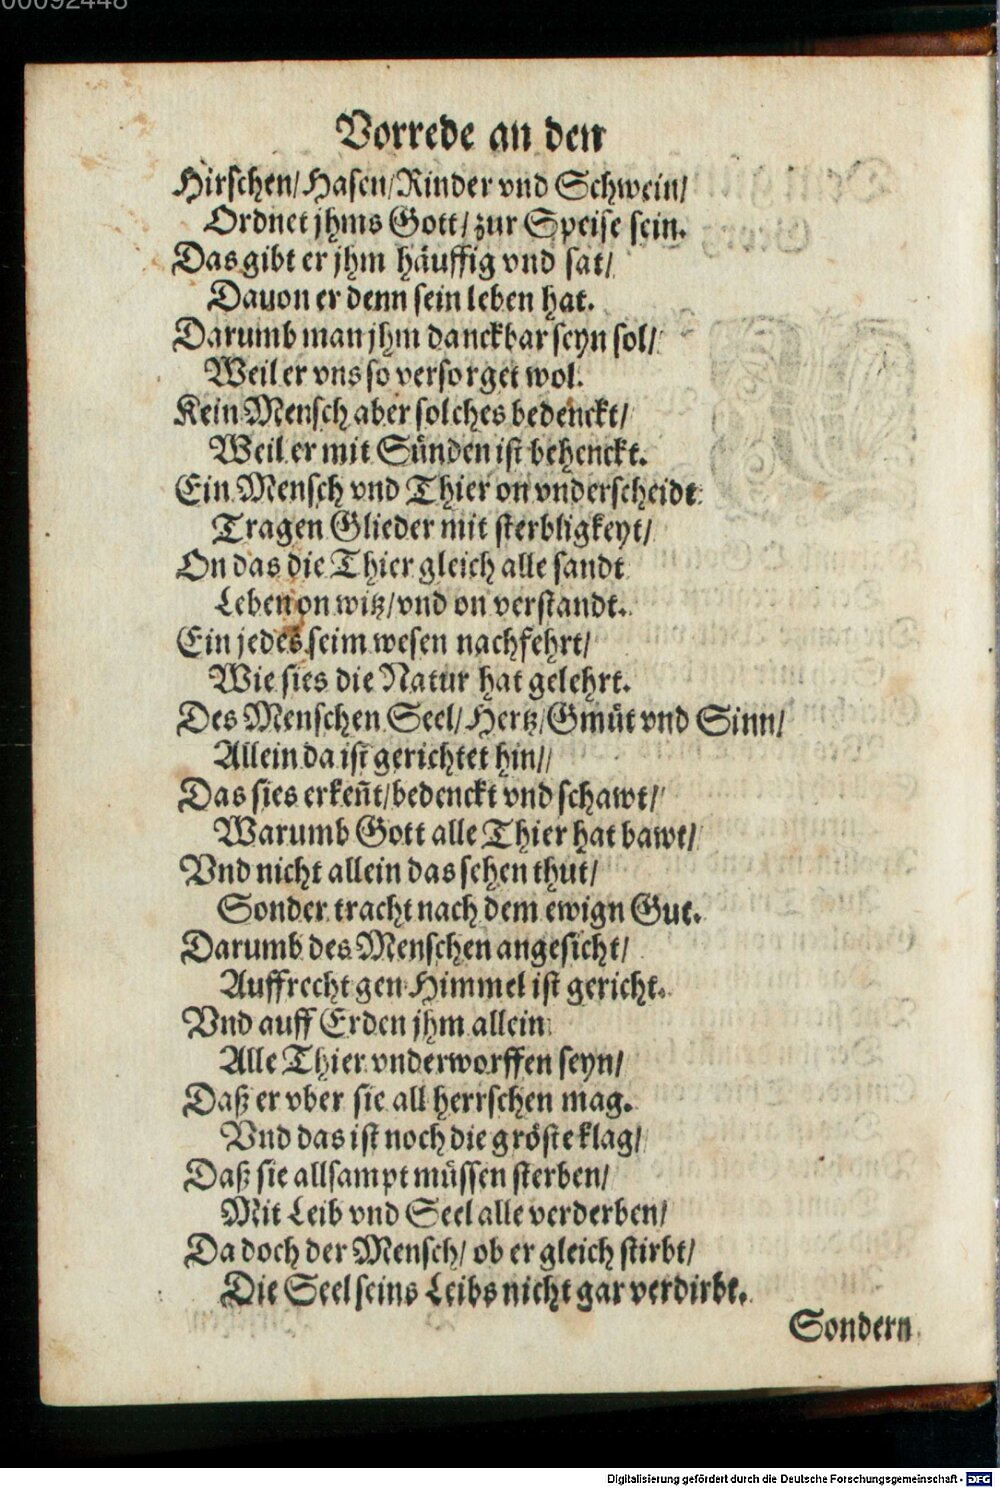 00092448
Vorrede an den
Hirschen/ Hasen/ Rinder vnd Schwein/
Ordnet jhms Gott/ zur Speise sein.
Das gibt er jhm häuffig vnd sat/
Dauon er denn sein leben hat.
Darumb man jhm danckbar seyn sol/
Weil er vns so versorget wol.
Kein Mensch aber solches bedenckt/
Weil er mit Sünden ist behenckt.
Ein Mensch vnd Thier on vnderscheidt
Tragen Glieder mit sterbligkeyt/
On das die Thier gleich alle sandt
Leben on witz/ vnd on verstandt.
Ein jedes seim wesen nachfehrt/
Wie sies die Natur hat gelehrt.
Des Menschen Seel/ Hertz/ Gmüt vnd Sinn/
Allein da ist gerichtet hin/
Das sies erkeñt/ bedenckt vnd schawt/
Warumb Gott alle Thier hat bawt/
Vnd nicht allein das sehen thut/
Sonder tracht nach dem ewign Gut.
Darumb des Menschen angesicht/
Auffrecht gen Himmel ist gericht.
Vnd auff Erden jhm allein
Alle Thier vnderworffen seyn/
Daß er vber sie all herrschen mag.
Vnd das ist noch die gröste klag/
Daß sie allsampt müssen sterben/
Mit Leib vnd Seel alle verderben/
Da doch der Mensch/ ob er gleich stirbt/
Die Seel seins Leibs nicht gar verdirbt.
Sondern
Digitalisierung gefördert durch die Deutsche Forschungsgemeinschaft - DFG